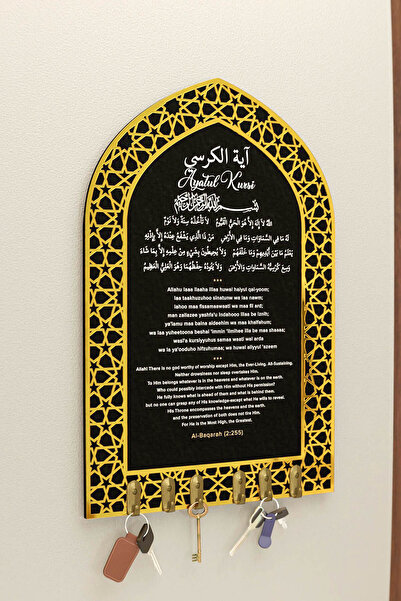 آية الكرسي
Ayatul Kursi
بسم الله الرحمن الرحيم
اللَّهُ لَا إِلَهَ إِلَّا هُوَ الْحَيُّ الْقَيُّومُ لَا تَأْخُذُهُ سِنَةٌ وَلَا نَوْمٌ
لَهُ مَا فِي السَّمَاوَاتِ وَمَا فِي الْأَرْضِ مَنْ ذَا الَّذِي يَشْفَعُ عِنْدَهُ إِلَّا بِإِذْنِهِ
يَعْلَمُ مَا بَيْنَ أَيْدِيهِمْ وَمَا خَلْفَهُمْ وَلَا يُحِيطُونَ بِشَيْءٍ مِنْ عِلْمِهِ إِلَّا بِمَا شَاءَ
وَسِعَ كُرْسِيُّهُ السَّمَاوَاتِ وَالْأَرْضَ وَلَا يَئُودُهُ حِفْظُهُمَا وَهُوَ الْعَلِيُّ الْعَظِيمُ
Allahu laaa ilaaha illaa huwal haiyul qai-yoom;
laa taakhuzuhoo sinatunw wa laa nawm;
lahoo maa fissamaawaati wa maa fil ard;
man zallazee yashfa'u indahooo illaa be iznih;
ya'lamu maa baina aideehim wa maa khalfahum;
wa laa yuheetoona beshai 'immin 'ilmihee illa be maa shaaa;
wasi'a kursiyyuhus samaa waati wal arda
wa la ya'ooduho hifzuhumaa; wa huwal aliyyul 'azeem
Allah! There is no god worthy of worship except Him, the Ever-Living, All-Sustaining.
Neither drowsiness nor sleep overtakes Him.
To Him belongs whatever is in the heavens and whatever is on the earth.
Who could possibly intercede with Him without His permission?
He fully knows what is ahead of them and what is behind them,
but no one can grasp any of His knowledge-except what He wills to reveal.
His Throne encompasses the heavens and the earth,
and the preservation of both does not tire Him.
For He is the Most High, the Greatest.
Al-Baqarah (2:255)